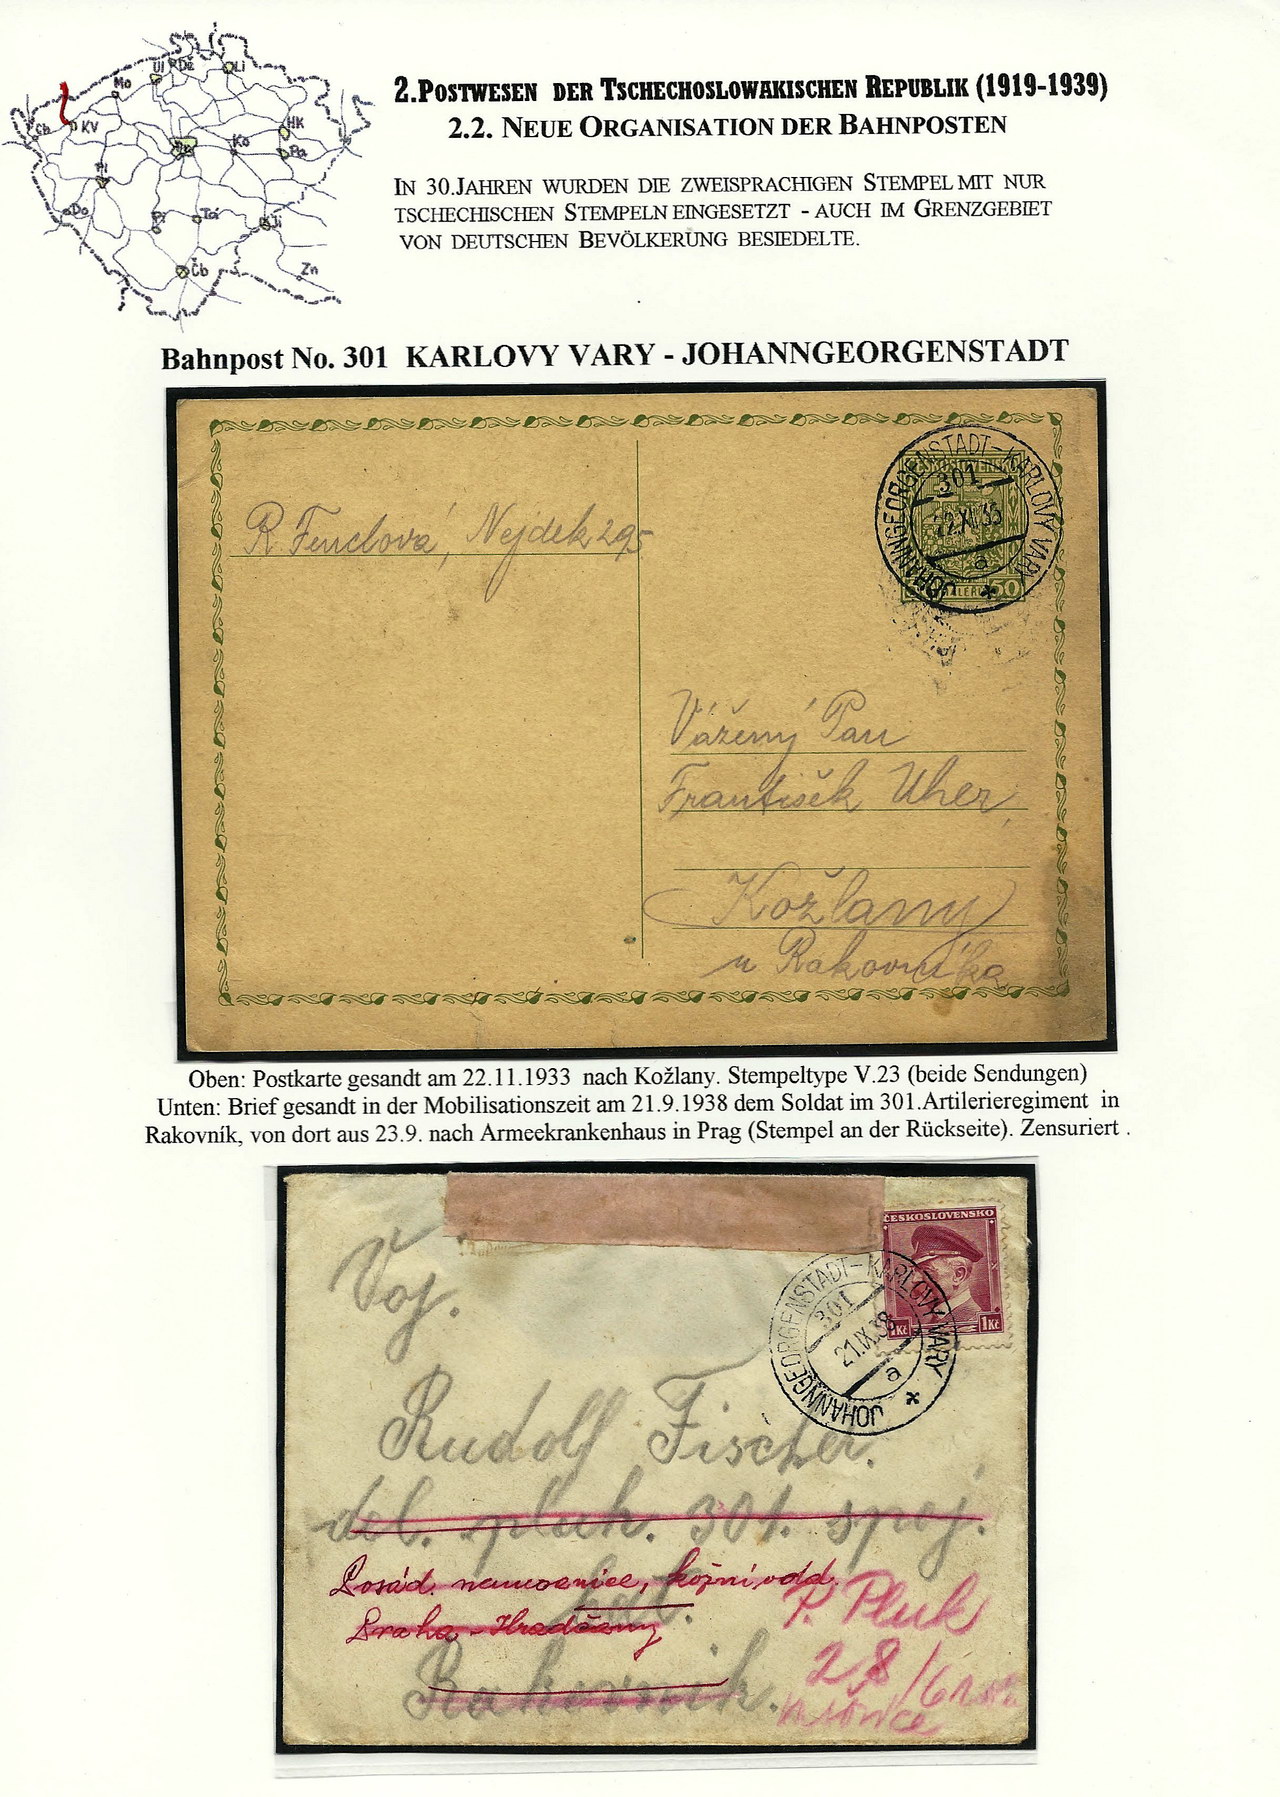 Ul
Dč
Li
Mo
Ch
KV
HK
Ko
Pa
Pl
Do
Tá
Ji
Čb
Zn
2.Postwesen der Tschechoslowakischen Republik (1919-1939)
2.2. Neue Organisation der Bahnposten
In 30.Jahren wurden die zweisprachigen Stempel mit nur
tschechischen Stempeln eingesetzt - auch im Grenzgebiet
von deutschen Bevölkerung besiedelte.
Bahnpost No. 301 KARLOVY VARY - JOHANNGEORGENSTADT
JOHANNGEORGENSTADT-KARLOVY VARY
301
22.XI.33
a
50
R. Fenclová, Nejdek 295
Vážený Pan
František Uher,
Kožlany
u Rakovníka
Oben: Postkarte gesandt am 22.11.1933 nach Kožlany. Stempeltype V.23 (beide Sendungen)
Unten: Brief gesandt in der Mobilisationszeit am 21.9.1938 dem Soldat im 301.Artilerieregiment in
Rakovník, von dort aus 23.9. nach Armeekrankenhaus in Prag (Stempel an der Rückseite). Zensuriert .
ČESKOSLOVENSKO
1Kč 1Kč
JOHANNGEORGENSTADT-KARLOVY VARY
301
21.IX.38
a
Voj.
Rudolf Fischer.
děl. pluk. 301. spoj.
Posád. nemocnice, kožní odd.
Praha - Hradčany
P. Pluk
28/
Rakovník.